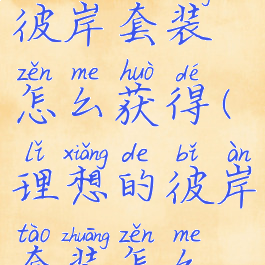 彼岸套装
zěn me huò dé
怎么获得(
lǐ xiǎng de bǐ àn
理想的彼岸
tào zhuāng zěn me
套装怎么